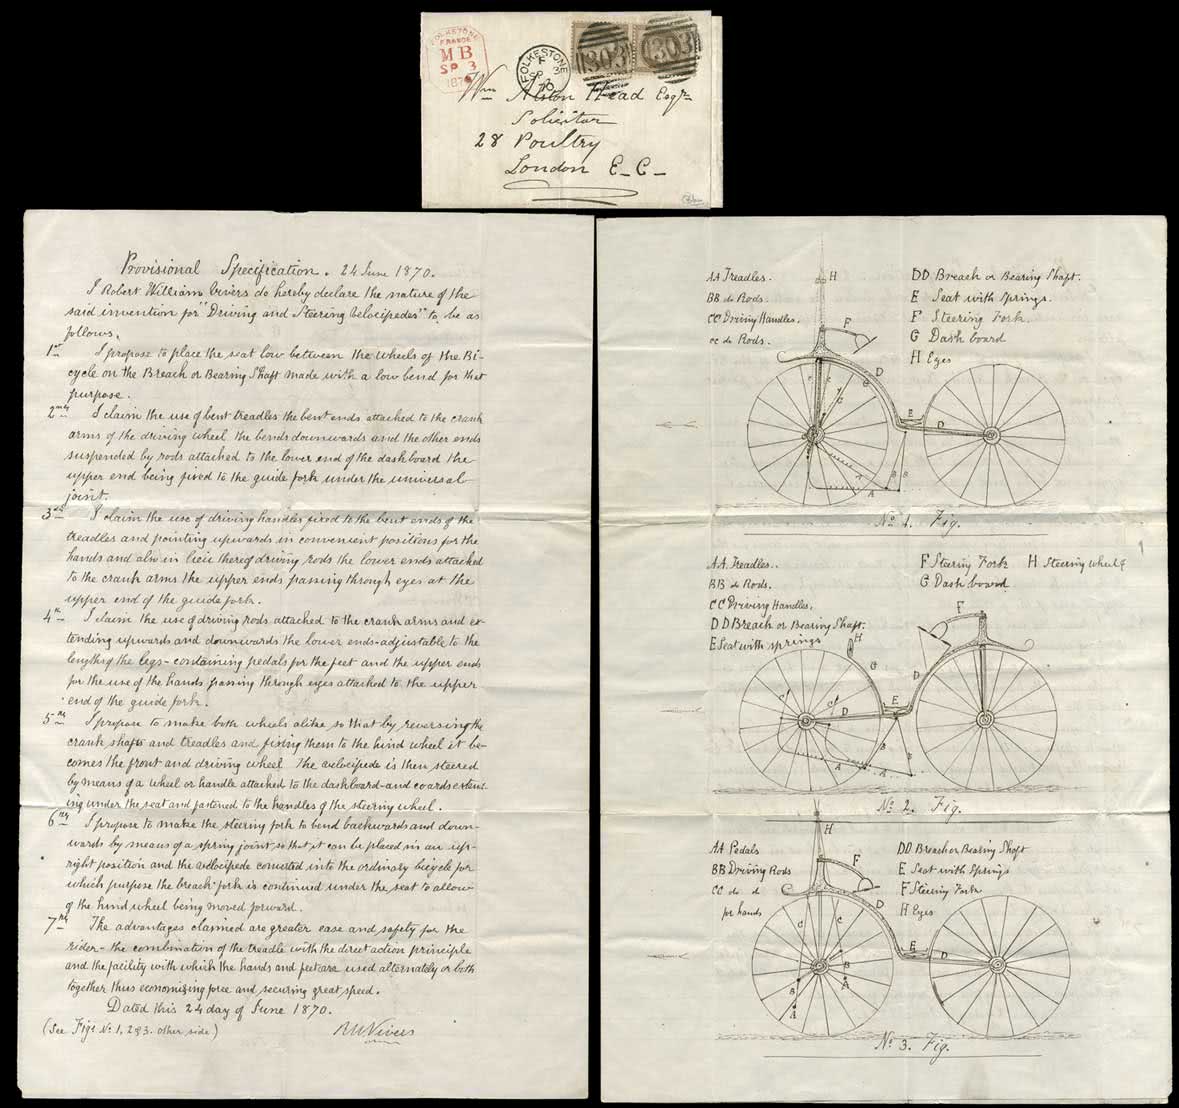 FOLKESTONE
FRANCE
MB
SP 3
187
FOLKESTONE
F
SP 3
70
303
303
Wm Alston Head Esqre
Solicitor
28 Poultry
London E-C-
Provisional Specification. 24 June 1870.
I Robert William Vivers do hereby declare the nature of the
said invention for "Driving and Steering Velocipedes" to be as
follows.
1st I propose to place the seat low between the wheels of the Bi-
cycle on the Breach or Bearing Shaft made with a low bend for that
purpose.
2ndly I claim the use of bent treadles the bent ends attached to the crank
arms of the driving wheel the bends downwards and the other ends
suspended by rods attached to the lower end of the dashboard the
upper end being fixed to the guide fork under the universal
joint.
3rd I claim the use of driving handles fixed to the bent ends of the
treadles and pointing upwards in convenient positions for the
hands and also in lieu thereof driving rods the lower ends attached
to the crank arms the upper ends passing through eyes at the
upper end of the guide fork.
4th I claim the use of driving rods attached to the crank arms and ex-
tending upwards and downwards the lower ends-adjustable to the
length of the legs-containing pedals for the feet and the upper ends
for the use of the hands passing through eyes attached to the upper
end of the guide fork.
5thly I propose to make both wheels alike so that by reversing the
crank shafts and treadles and fixing them to the hind wheel it be-
comes the front and driving wheel. The velocipede is then steered
by means of a wheel or handle attached to the dashboard-and coards extend-
ing under the seat and fastened to the handles of the steering wheel.
6thly I propose to make the steering fork to bend backwards and down-
wards by means of a spring joint so that it can be placed in an up-
right position and the velocipede converted into the ordinary bicycle for
which purpose the breach fork is continued under the seat to allow
of the hind wheel being moved forward.
7thly The advantages claimed are greater ease and safety for the
rider-the combination of the treadle with the direct action principle
and the facility with which the hands and feet are used alternately or both
together thus economizing force and securing great speed.
Dated this 24 day of June 1870.
(See Figs No. 1, 2 & 3. other side)
RW Vivers
AA Treadles.
BB do Rods.
CC Driving Handles.
cc do Rods.
DD Breach or Bearing Shaft.
E Seat with springs.
F Steering Fork.
G Dash board
H Eyes
H
F
D
G
E
D
A
B
B
No 1. Fig.
AA. Treadles.
BB do Rods.
CC Driving Handles.
DD Breach or Bearing Shaft.
E Seat with springs
F Steering Fork
G Dash board
H Steering wheel
H
F
G
D
E
D
C
C
B
B
A
A
No 2. Fig.
AA Pedals
BB Driving Rods
CC do do
for hands
DD Breach or Bearing Shaft
E Seat with Springs
F Steering Fork
H Eyes
H
F
D
C
C
E
D
B
B
A
A
No 3. Fig.